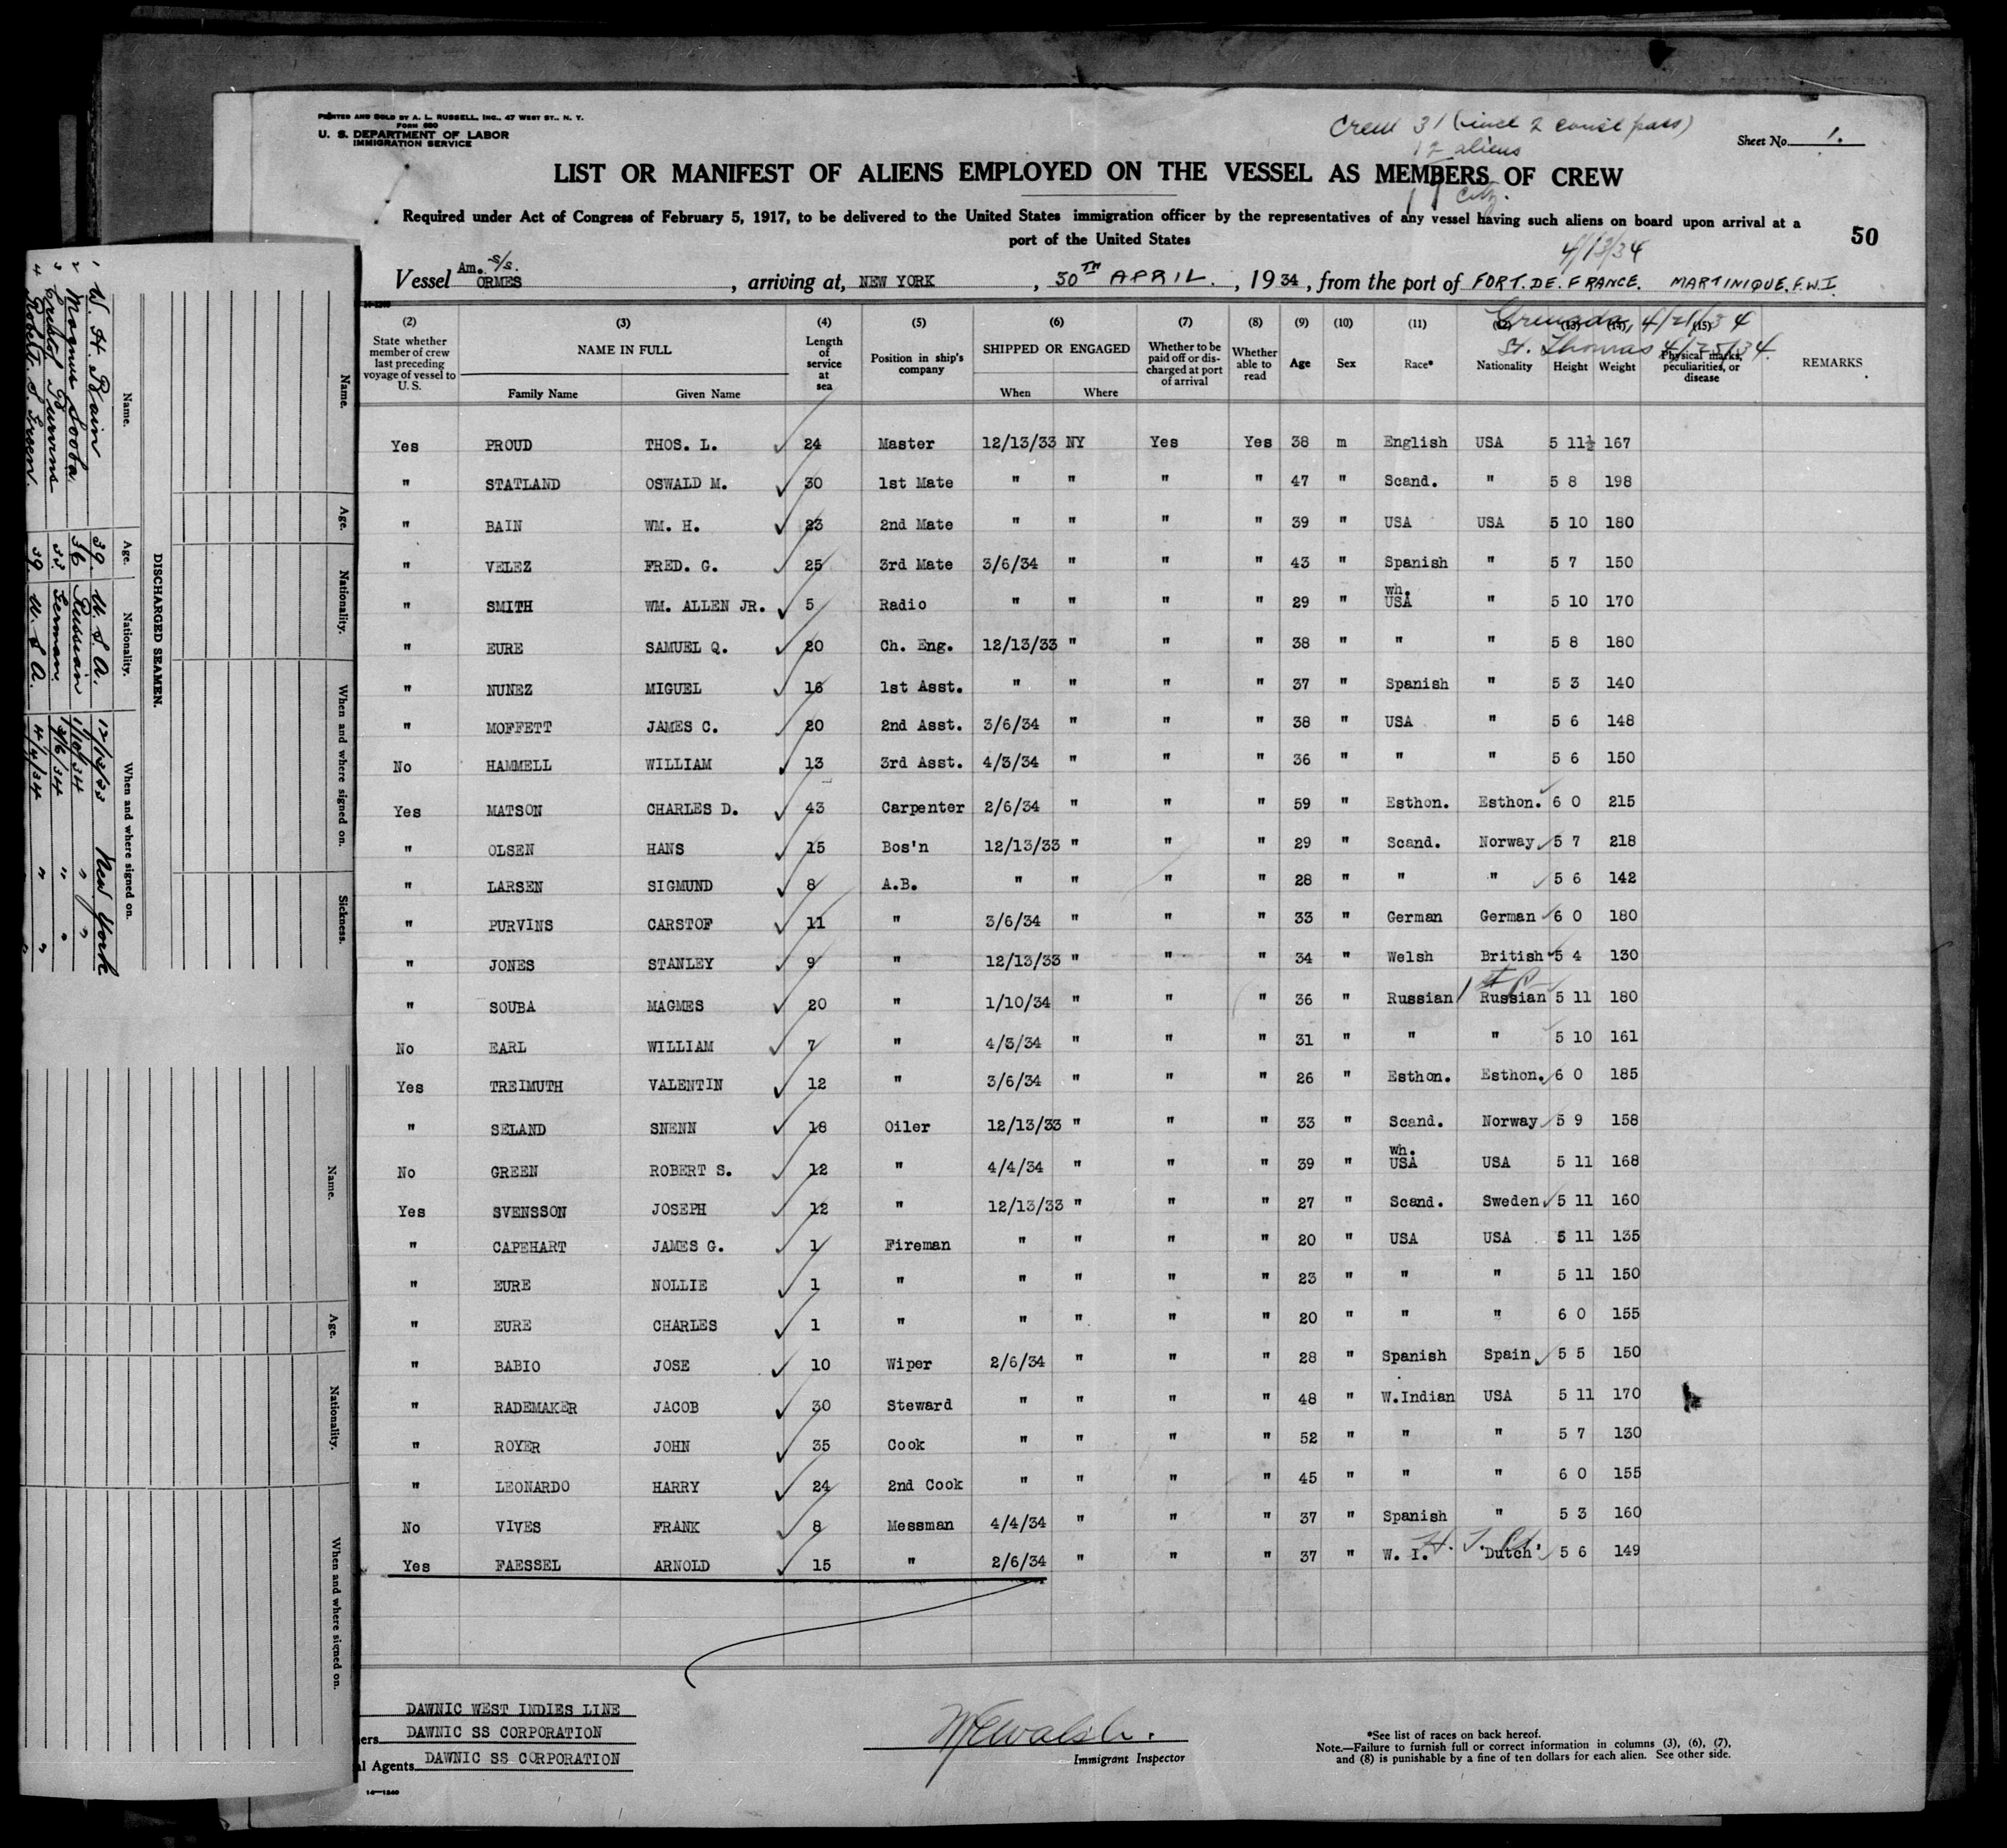 PRINTED AND SOLD BY A. L. RUSSELL, INC., 47 WEST ST., N. Y.
FORM 680
U. S. DEPARTMENT OF LABOR
IMMIGRATION SERVICE
Crew 31 (incl 2 cons'l pass)
12 aliens
19 citz.
Sheet No. 1.
LIST OR MANIFEST OF ALIENS EMPLOYED ON THE VESSEL AS MEMBERS OF CREW
Required under Act of Congress of February 5, 1917, to be delivered to the United States immigration officer by the representatives of any vessel having such aliens on board upon arrival at a
port of the United States
50
4/13/34
Vessel Am. s/s. ORMES, arriving at, NEW YORK, 30TH APRIL., 1934, from the port of FORT. DE. FRANCE. MARTINIQUE. F.W.I.
Grenada, 4/21/34
St. Thomas 4/25/34.
(2) (3) (4) (5) (6) (7) (8) (9) (10) (11) (12) (13) (14) (15)
State whether member of crew last preceding voyage of vessel to U. S. NAME IN FULL Family Name Given Name Length of service at sea Position in ship's company SHIPPED OR ENGAGED When Where Whether to be paid off or discharged at port of arrival Whether able to read Age Sex Race* Nationality Height Weight Physical marks, peculiarities, or disease REMARKS
Yes PROUD THOS. L. 24 Master 12/13/33 NY Yes Yes 38 m English USA 5 11½ 167
" STATLAND OSWALD M. 30 1st Mate " " " " 47 " Scand. " 5 8 198
" BAIN WM. H. 23 2nd Mate " " " " 39 " USA USA 5 10 180
" VELEZ FRED. G. 25 3rd Mate 3/6/34 " " " 43 " Spanish " 5 7 150
" SMITH WM. ALLEN JR. 5 Radio " " " " 29 " wh. USA " 5 10 170
" EURE SAMUEL Q. 20 Ch. Eng. 12/13/33 " " " 38 " " " 5 8 180
" NUNEZ MIGUEL 16 1st Asst. " " " " 37 " Spanish " 5 3 140
" MOFFETT JAMES C. 20 2nd Asst. 3/6/34 " " " 38 " USA " 5 6 148
No HAMMELL WILLIAM 13 3rd Asst. 4/3/34 " " " 36 " " " 5 6 150
Yes MATSON CHARLES D. 43 Carpenter 2/6/34 " " " 59 " Esthon. Esthon. 6 0 215
" OLSEN HANS 15 Bos'n 12/13/33 " " " 29 " Scand. Norway 5 7 218
" LARSEN SIGMUND 8 A.B. " " " " 28 " " " 5 6 142
" PURVINS CARSTOF 11 " 3/6/34 " " " 33 " German German 6 0 180
" JONES STANLEY 9 " 12/13/33 " " " 34 " Welsh British 5 4 130
" SOUBA MAGMES 20 " 1/10/34 " " " 36 " Russian Russian 5 11 180
No EARL WILLIAM 7 " 4/3/34 " " " 31 " " " 5 10 161
Yes TREIMUTH VALENTIN 12 " 3/6/34 " " " 26 " Esthon. Esthon. 6 0 185
" SELAND SNENN 18 Oiler 12/13/33 " " " 33 " Scand. Norway 5 9 158
No GREEN ROBERT S. 12 " 4/4/34 " " " 39 " wh. USA USA 5 11 168
Yes SVENSSON JOSEPH 12 " 12/13/33 " " " 27 " Scand. Sweden 5 11 160
" CAPEHART JAMES G. 1 Fireman " " " " 20 " USA USA 5 11 135
" EURE NOLLIE 1 " " " " " 23 " " " 5 11 150
" EURE CHARLES 1 " " " " " 20 " " " 6 0 155
" BABIO JOSE 10 Wiper 2/6/34 " " " 28 " Spanish Spain 5 5 150
" RADEMAKER JACOB 30 Steward " " " " 48 " W.Indian USA 5 11 170
" ROYER JOHN 35 Cook " " " " 52 " " " 5 7 130
" LEONARDO HARRY 24 2nd Cook " " " " 45 " " " 6 0 155
No VIVES FRANK 8 Messman 4/4/34 " " " 37 " Spanish " 5 3 160
Yes FAESSEL ARNOLD 15 " 2/6/34 " " " 37 " W. I. Dutch 5 6 149
DAWNIC WEST INDIES LINE
ers DAWNIC SS CORPORATION
al Agents DAWNIC SS CORPORATION
14—1240
Immigrant Inspector
*See list of races on back hereof.
Note.—Failure to furnish full or correct information in columns (3), (6), (7),
and (8) is punishable by a fine of ten dollars for each alien. See other side.
DISCHARGED SEAMEN.
Name. Age. Nationality. When and where signed on.
1 W. H. Bain 39. U. S. A. 12/13/33 New York
2 Magnus Sooba 36 Russian 1/10/34 " "
3 Cristof Purvins 33. German. 3/6/34 " "
4 Robert. S. Green. 39. U. S. A. 4/4/34 " "
Name. Age. Nationality. When and where signed on. Sickness.
Name. Age. Nationality. When and where signed on.